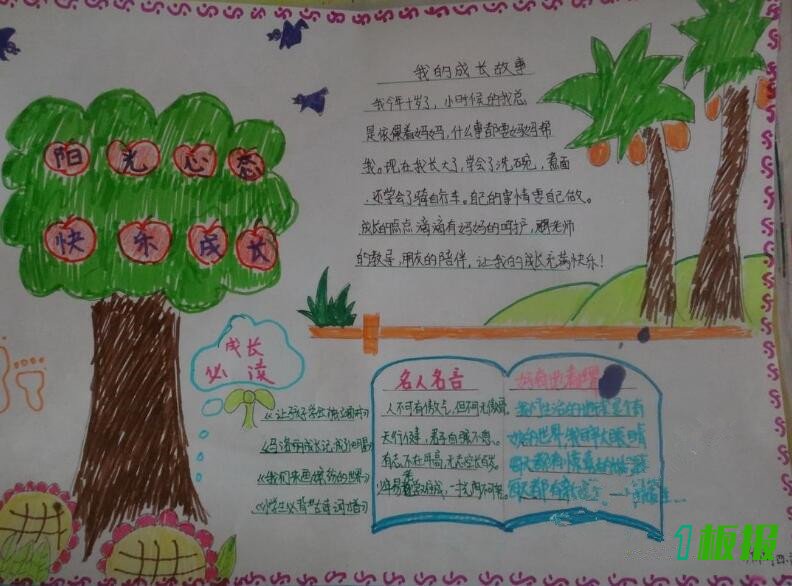 阳光心态
快乐成长
我的成长故事
我今年十岁了，小时候的我总
是依偎着妈妈，什么事都要妈妈帮
我。现在我长大了，学会了洗碗，煮面
还学会了骑自行车。自己的事情要自己做。
成长的点点滴滴有妈妈的呵护，老师
的教导，朋友的陪伴，让我的成长充满快乐！
成长
必读
《让孩子学会
成长记
我们来画缤纷的世界》
《小学生必背古诗词
名人名言
人不可有傲气，但不可无傲骨
天行健，君子自强不息。
有志不在年高，无志空长百岁。
少年易学难成，一寸不可轻
我们生活的
的世界，我睁大眼睛
每天都有
每天都有
1板报